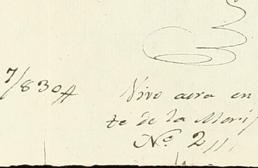 7/830
Vivo aora en
te de la Mori
Nº 2